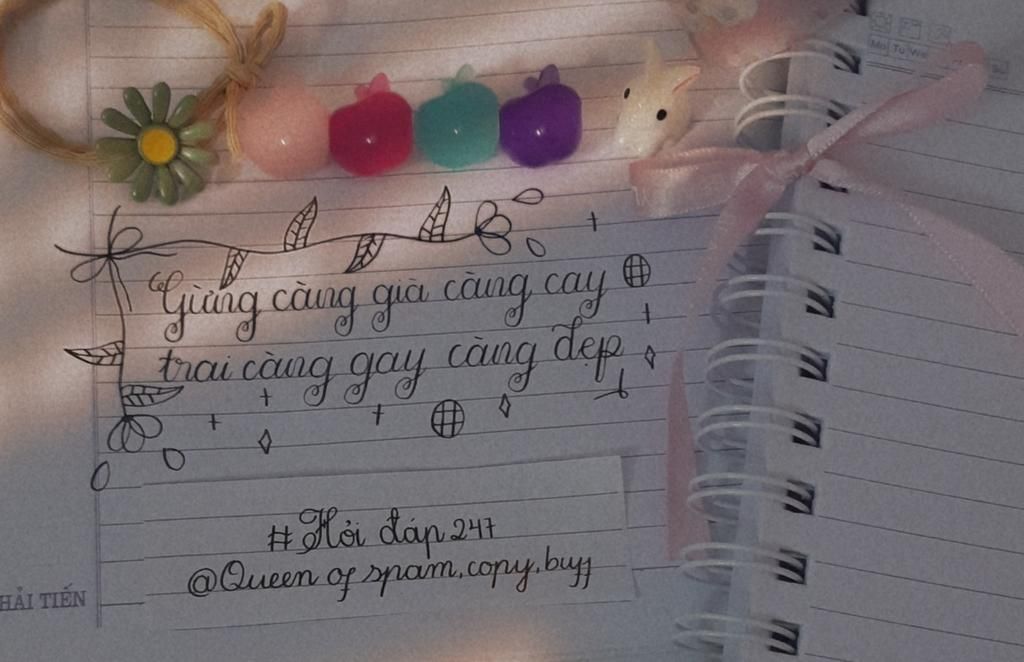 Mo Tu We
"Giừng càng già càng cay
trai càng gay càng đẹp
# Hỏi đáp 247
@Queen of spam.copy.buff
HẢI TIẾN